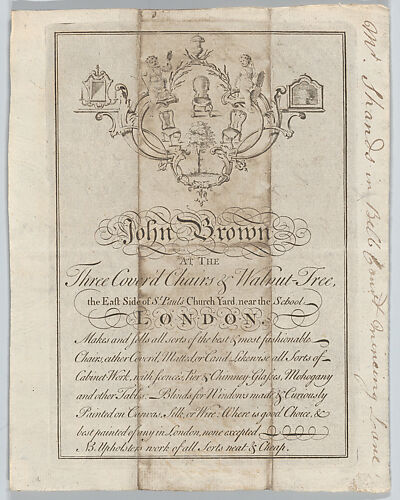 John Brown
AT THE
Three Cover'd Chairs & Walnut-Tree,
the East Side of St. Paul's Church Yard, near the School
LONDON.
Makes and sells all sorts of the best & most fashionable
Chairs, either Cover'd, Matted, or Cand. Likewise all Sorts of
Cabinet Work, with Sconces, Pier & Chimney Glasses, Mohogany
and other Tables. Blinds for Windows made & Curiously
Painted on Canvas, Silk, or Wire. Where is good Choice, &
best painted of any in London, none excepted
NB. Upholsters work of all Sorts neat & Cheap.
Mr. Shands in Bell Court Mincing Lane